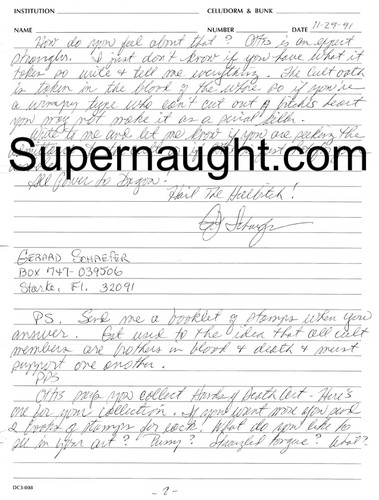 INSTITUTION CELL/DORM & BUNK
NAME NUMBER DATE 11-29-91
How do you feel about that? Ottis is an expert
strangler. I just don't know if you have what it
takes so write & tell me everything. The cult oath
is taken in the blood of the whore so if you're
a wimpy type who can't cut out a bitches heart
you may not make it as a serial killer.
Write to me and let me know if you are seeking the
Supernaught.com
All Power to
Hail The Hellbitch!
GJ Schaefer
GERARD SCHAEFER
BOX 747-039506
Starke, Fl. 32091
PS. Send me a booklet of stamps when you
answer. Get used to the idea that all cult
members are brothers in blood & death & must
support one another.
PPS
Ottis says you collect Hands of Death Art. Here's
one for your collection. If you want more you send
2 books of stamps for each. What do you like to
see in your art? Strangled tongue? What?
DC3-008
-2-